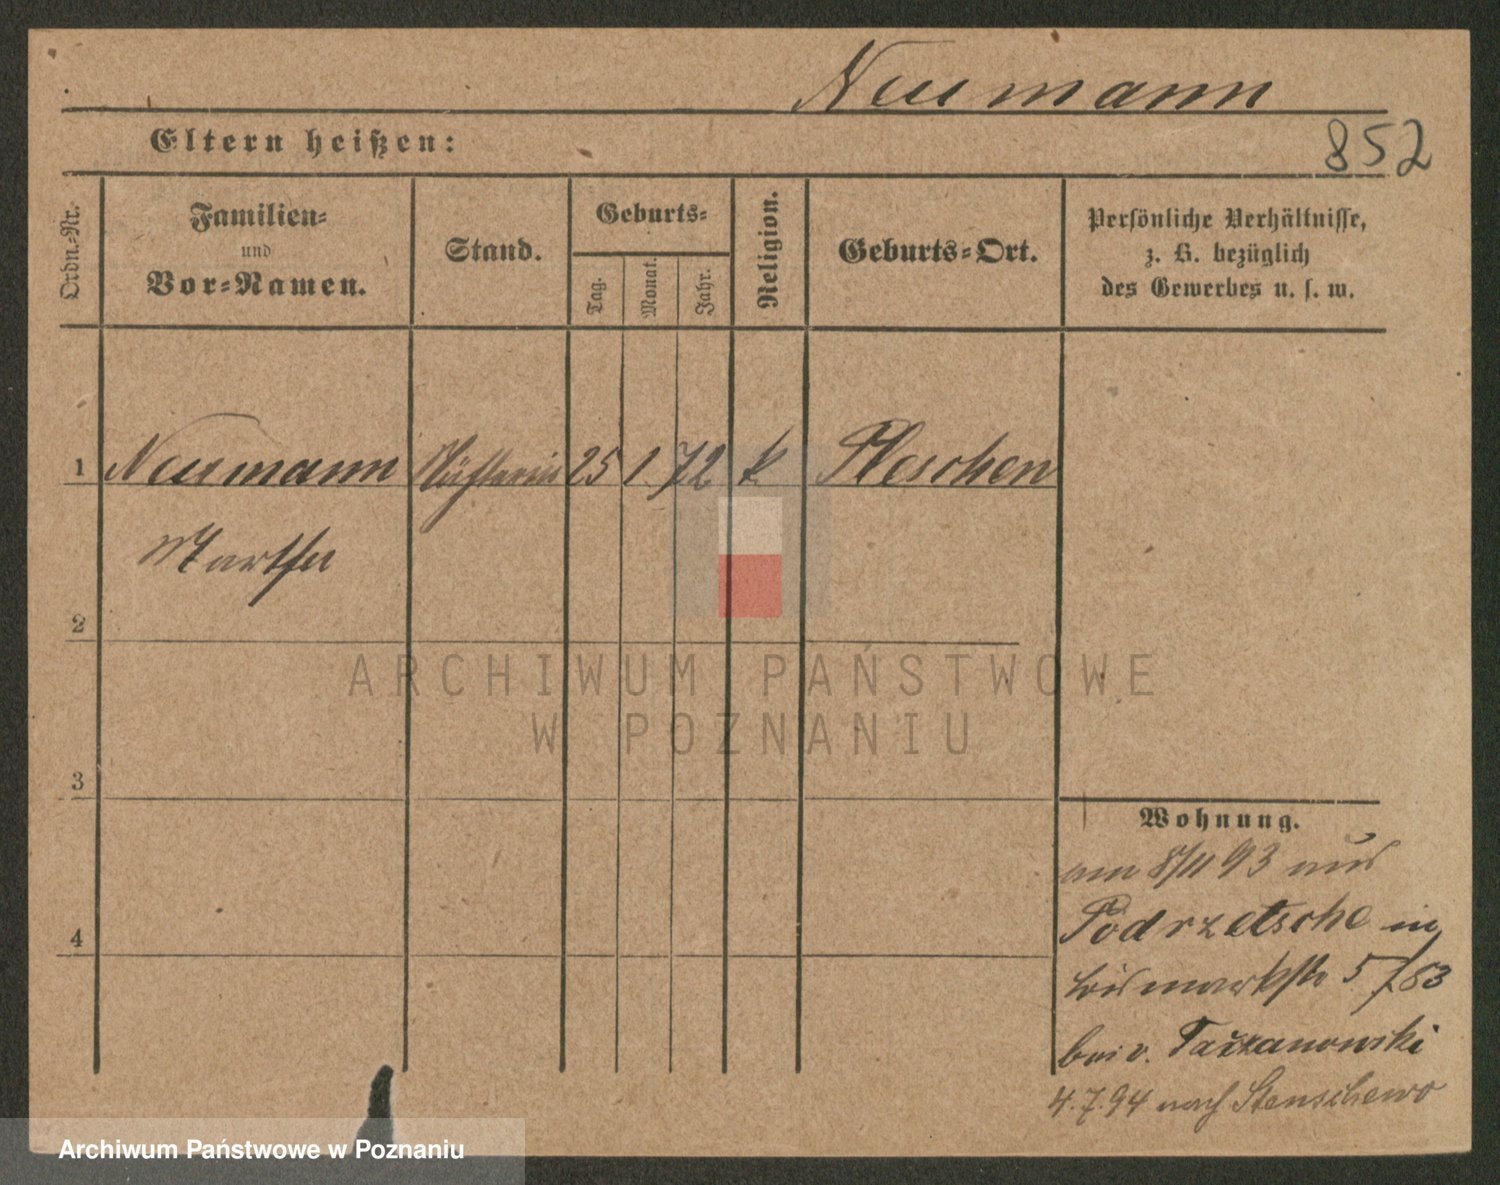 Neumann
852
Eltern heißen:
Ordn.-Nr.
Familien-
und
Vor-Namen.
Stand.
Geburts-
Tag.
Monat.
Jahr.
Religion.
Geburts-Ort.
Persönliche Verhältnisse,
z. B. bezüglich
des Gewerbes u. s. w.
1
Neumann
25
1
72
k
Pleschen
Martha
2
3
4
ARCHIWUM PAŃSTWOWE
W POZNANIU
Wohnung.
am 8/11 93 aus
Podrzetsche in
Bismarkstr 5
bei v. Taczanowski
4.7.94 nach Stenschewo
Archiwum Państwowe w Poznaniu